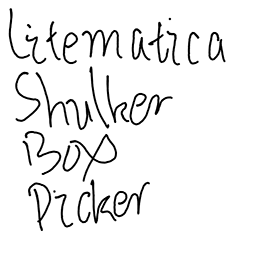 Litematica
Shulker
Box
Picker